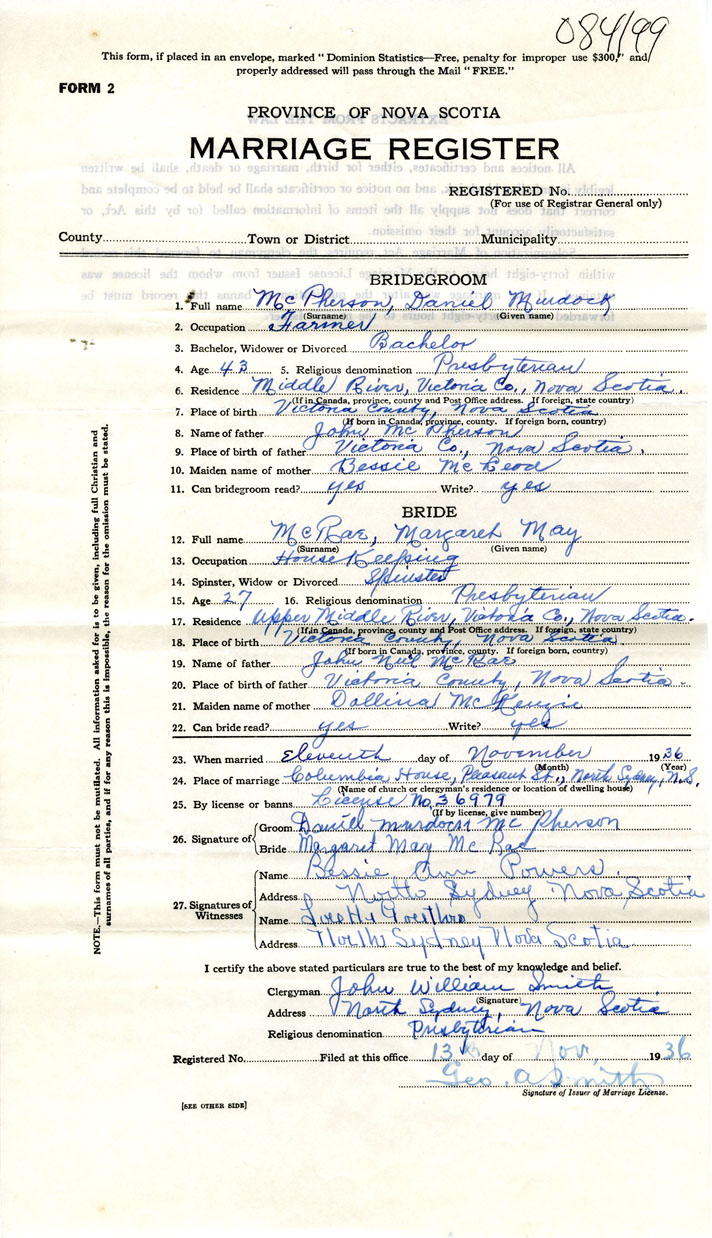 084199
This form, if placed in an envelope, marked "Dominion Statistics—Free, penalty for improper use $300," and
properly addressed will pass through the Mail "FREE."
FORM 2
PROVINCE OF NOVA SCOTIA
MARRIAGE REGISTER
REGISTERED No.
(For use of Registrar General only)
County Town or District Municipality
BRIDEGROOM
1. Full name McPherson, Daniel Murdock
(Surname) (Given name)
2. Occupation Farmer
3. Bachelor, Widower or Divorced Bachelor
4. Age 43 5. Religious denomination Presbyterian
6. Residence Middle River, Victoria Co., Nova Scotia.
(If in Canada, province, county and Post Office address. If foreign, state country)
7. Place of birth Victoria County, Nova Scotia
(If born in Canada, province, county. If foreign born, country)
8. Name of father John McPherson
9. Place of birth of father Victoria Co., Nova Scotia,
10. Maiden name of mother Bessie McLeod
11. Can bridegroom read? yes Write? yes
BRIDE
12. Full name McRae, Margaret May
(Surname) (Given name)
13. Occupation House Keeping
14. Spinster, Widow or Divorced Spinster
15. Age 27 16. Religious denomination Presbyterian
17. Residence Upper Middle River, Victoria Co., Nova Scotia.
(If in Canada, province, county and Post Office address. If foreign, state country)
18. Place of birth Victoria County, Nova Scotia
(If born in Canada, province, county. If foreign born, country)
19. Name of father John Neil McRae
20. Place of birth of father Victoria County, Nova Scotia
21. Maiden name of mother Dollina McKenzie
22. Can bride read? yes Write? yes
23. When married Eleventh day of November 1936
(Month) (Year)
24. Place of marriage Columbia House, Pleasant St., North Sydney, N.S.
(Name of church or clergyman's residence or location of dwelling house)
25. By license or banns License No. 36979
(If by license, give number)
26. Signature of Groom Daniel Murdock McPherson
Bride Margaret May McRae
27. Signatures of Witnesses Name Bessie Ann Powers
Address North Sydney Nova Scotia
Name
Address North Sydney Nova Scotia
I certify the above stated particulars are true to the best of my knowledge and belief.
Clergyman John William Smith
(Signature)
Address North Sydney, Nova Scotia
Religious denomination Presbyterian
Registered No. Filed at this office 13th day of Nov. 1936
Geo. A Smith
Signature of Issuer of Marriage License.
[SEE OTHER SIDE]
NOTE.—This form must not be mutilated. All information asked for is to be given, including full Christian and
surnames of all parties, and if for any reason this is impossible, the reason for the omission must be stated.